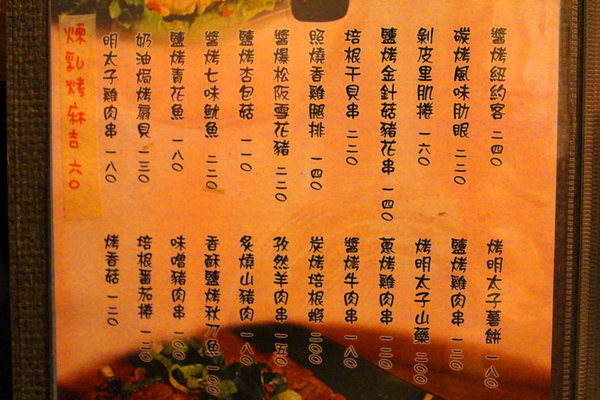 醬烤紐約客 二四〇
碳烤風味肋眼 二二〇
剝皮里肌捲 一六〇
鹽烤金針菇豬花串 一四〇
培根干貝串 二二〇
照燒香雞腿排 一四〇
醬爆松阪雪花豬 二二〇
鹽烤杏包菇 一一〇
醬烤七味魷魚 二二〇
鹽烤青花魚 一八〇
奶油焗烤扇貝 一三〇
明太子雞肉串 一八〇
煉乳烤麻吉 六〇
烤明太子薯餅 一八〇
鹽烤雞肉串 一二〇
烤明太子山藥 二〇〇
蔥烤雞肉串 一二〇
醬烤牛肉串 一八〇
炭烤培根蝦 二〇〇
孜然羊肉串 一五〇
炙燒山豬肉 一八〇
香酥鹽烤秋刀魚 一００
味噌豬肉串 一〇〇
培根番茄捲 一二〇
烤香菇 一二〇